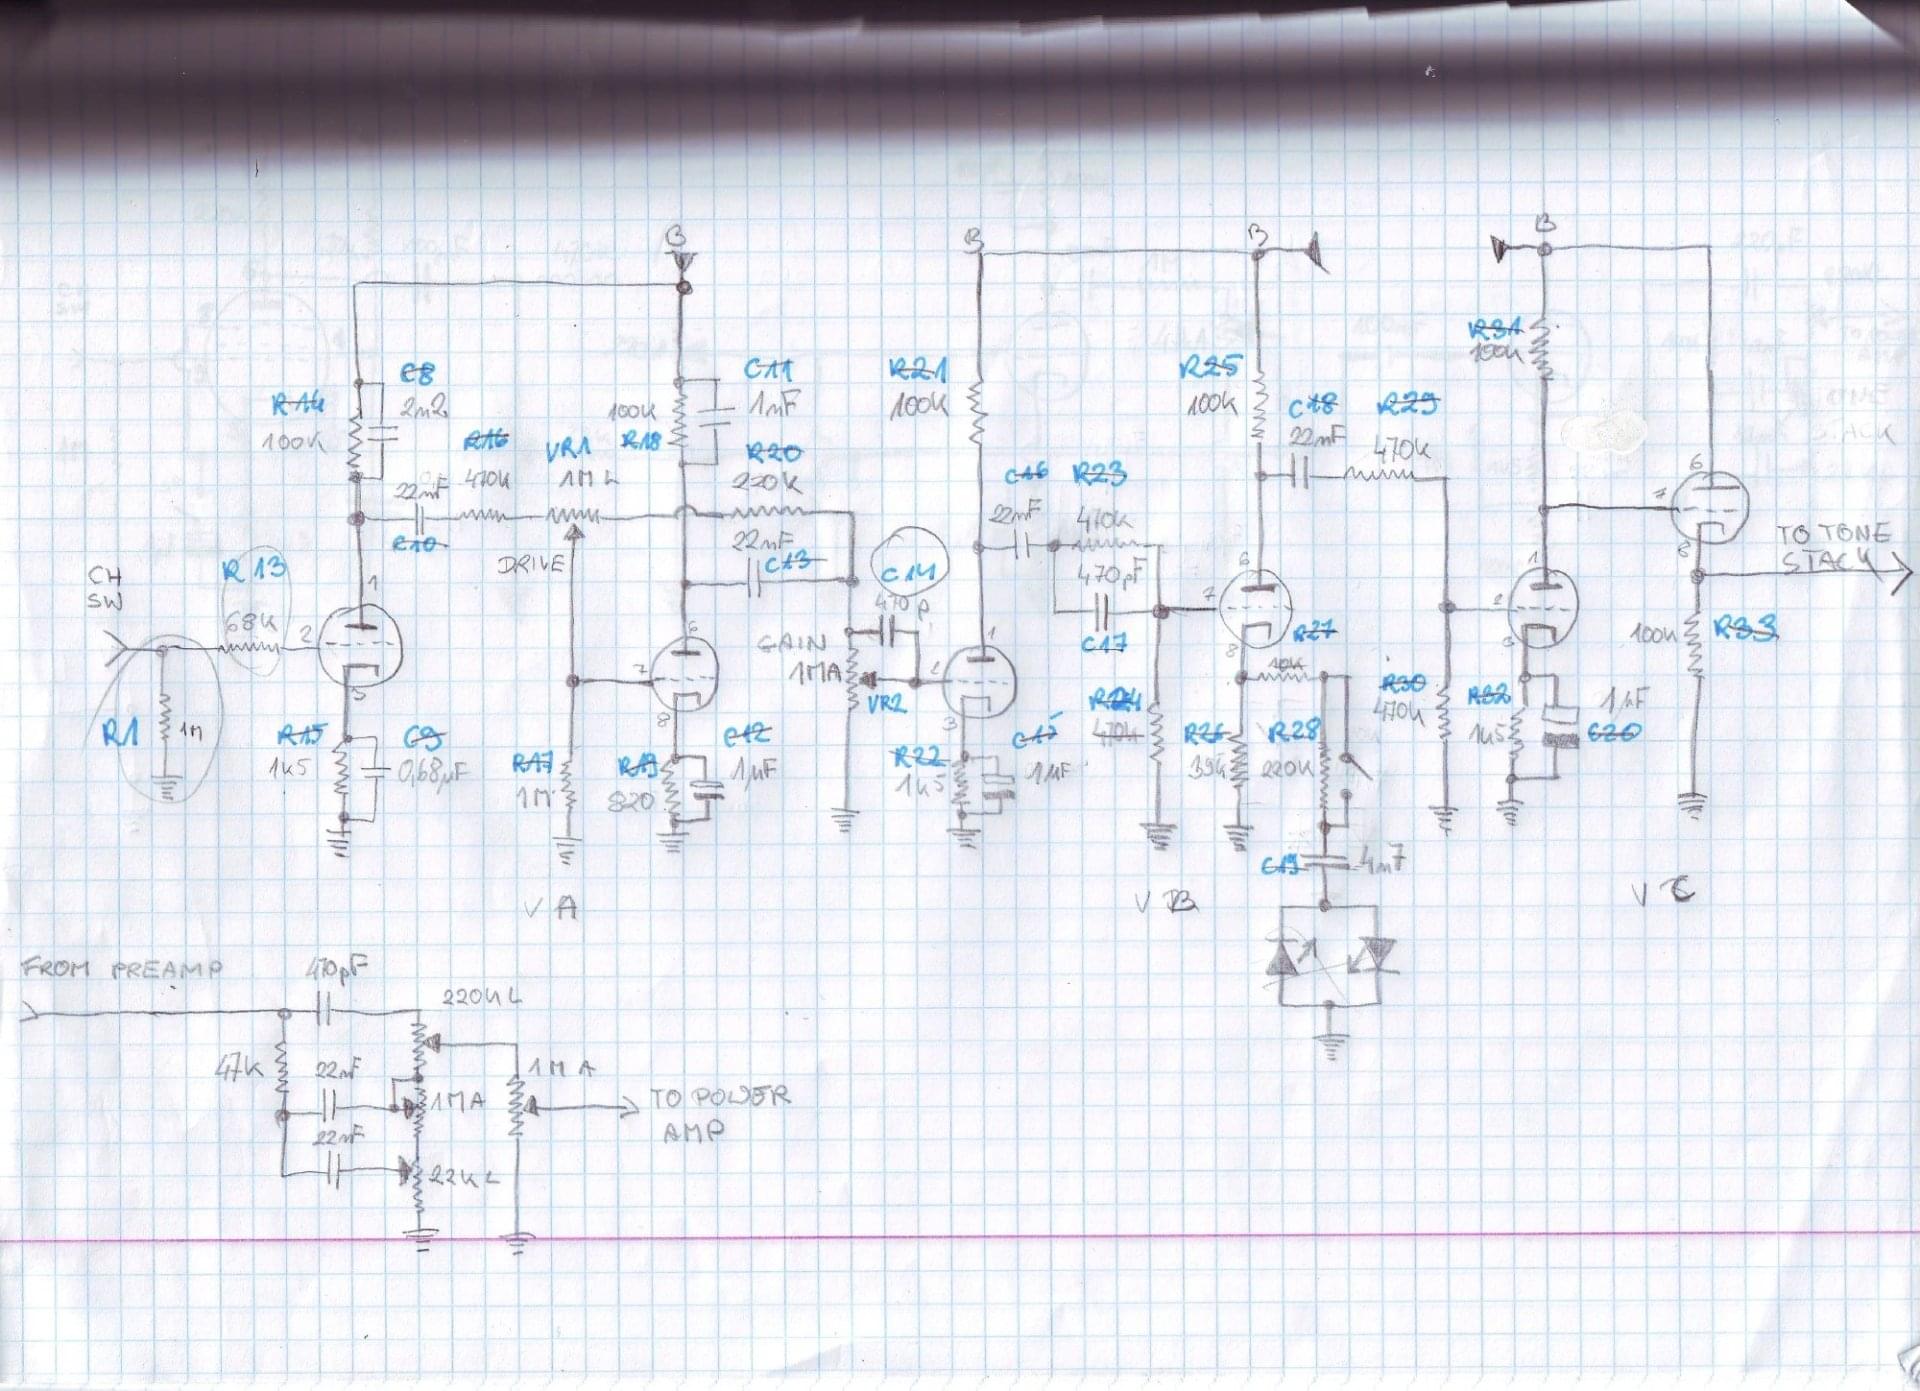 B
B
B
B
R14
100K
C8
2n2
R16
470K
22nF
R10
VR1
1M L
DRIVE
100K
R18
C11
1nF
R20
220K
22nF
C13
R21
100K
C16
22nF
R23
470K
470pF
C17
R25
100K
C18
22nF
R29
470K
R31
100K
CH
SW
R13
68K
1
2
3
R1
1M
R15
1K5
C9
0,68µF
R17
1M
6
7
8
R19
820
C12
1µF
C14
470p
GAIN
1MA
VR2
1
2
3
R22
1K5
C15
1µF
R24
470K
6
7
8
R27
10K
R26
39K
R28
220K
C19
4n7
R30
470K
1
2
3
R32
1K5
1µF
C20
6
7
8
100K
R33
TO TONE
STACK
V A
V B
V C
FROM PREAMP
470pF
220K L
47K
22nF
1MA
22nF
22K L
1M A
TO POWER
AMP